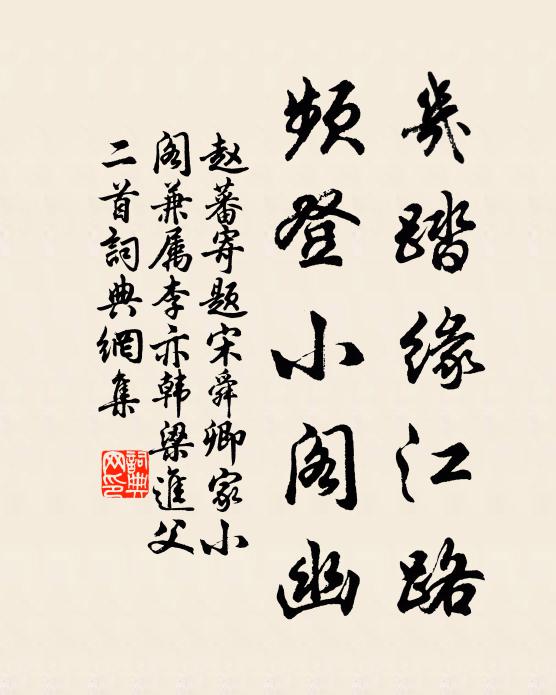 幾踏緣江路
頻登小阁幽
赵蕃寄题宋舜卿家小
阁兼属李亦韩梁進父
二首詞典網集
詞典
网印